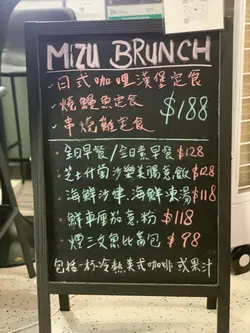 MiZU BRUNCH
·日式咖哩漢堡定食
·燒鰻魚定食
·串燒雞定食 $188
全日早餐/全日素早餐 $128
芝士什菌沙嗲美腸意飯 $128
海鮮沙律、海鮮凍湯 $118
鮮車厘茄意粉 $118
煙三文魚比高包 $98
包括一杯冷熱美式咖啡或果汁